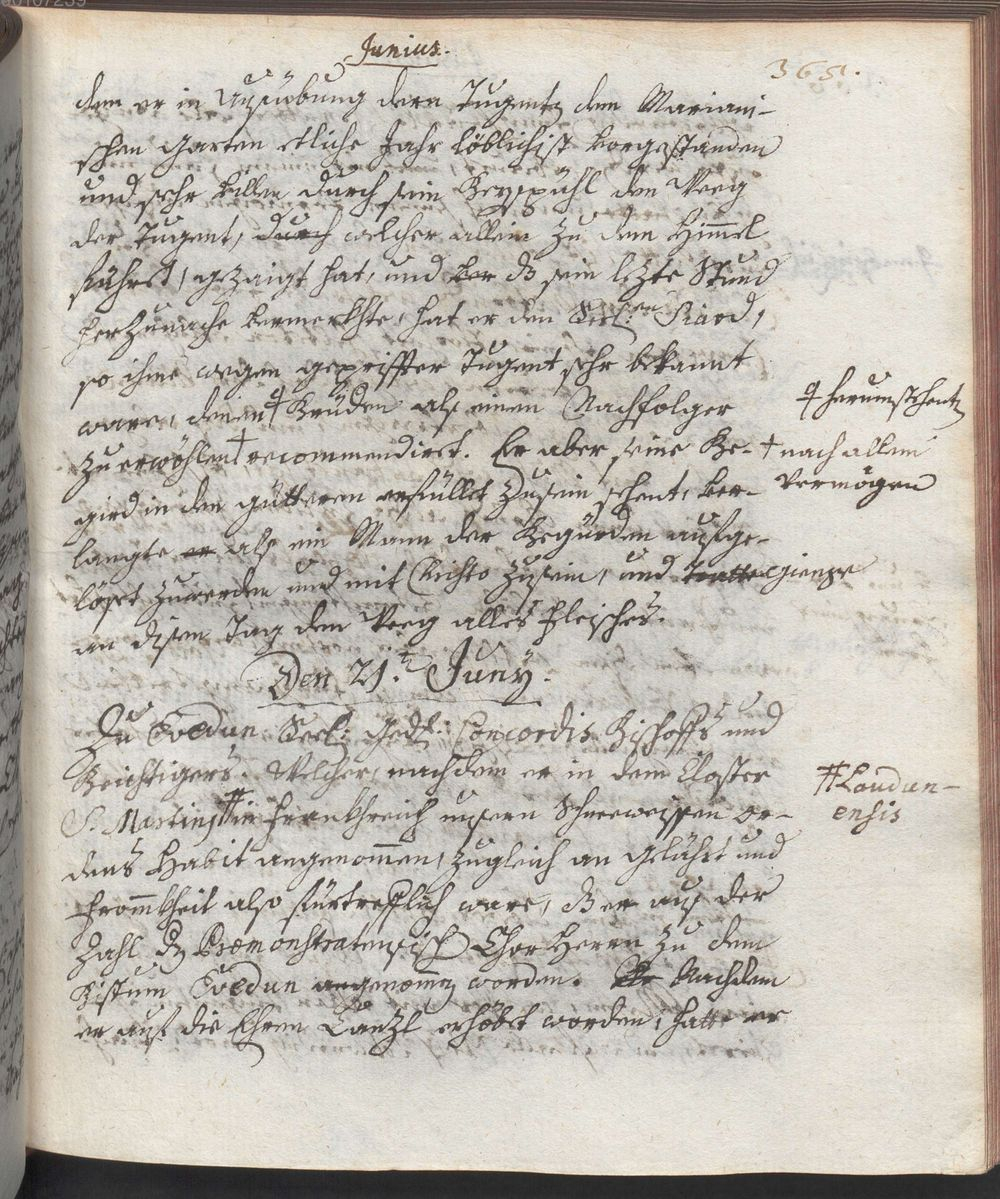 Junius.
365.
dem er in Ausübung deren Tugenten dem Mariani-
schen Garten etliche Jahr löblichist vorgestanden
und sehr villen durch sein Beyspühl den Weeg
der Tugent, durch welcher allein zu dem Himmel
führet, gezaigt hat, und da sein lezte Stund
herzunache vermerkhte, hat er den Seel:en Siard,
so ihme wegen gepriffter Tugent sehr bekannt
ware, denen Brüdern als einen Nachfolger
♀ herumstehenten
zu erwöhlen† recommendiret. Er aber seine Be-
† nach allem
vermögen
gird in den gütteren erfüllet zusein sehent, ver-
langte er als ein Mann der Begürden aufge-
löset zuwerden und mit Christo zusein, und gienge
an disen Tag den Weeg alles fleisches.
Den 21.ten Juny.
Zu Verdun Seel: Gedf: Concordis Bischoffs und
Beichtigers. Welcher, nachdem er in dem Closter
S. Martins # in Frankhreich unsern Schneeweissen or-
# Laudun-
ensis
dens Habit angenommen, zugleich an Gelührt und
frommkheit also fürtrefflich ware, das er aus der
Zahl der Præmonstratensischen Chor Herrn zu dem
Bistum Verdun genommen worden. Nachdem
er auf die Ehren Canzl erhöbet worden, hatte er